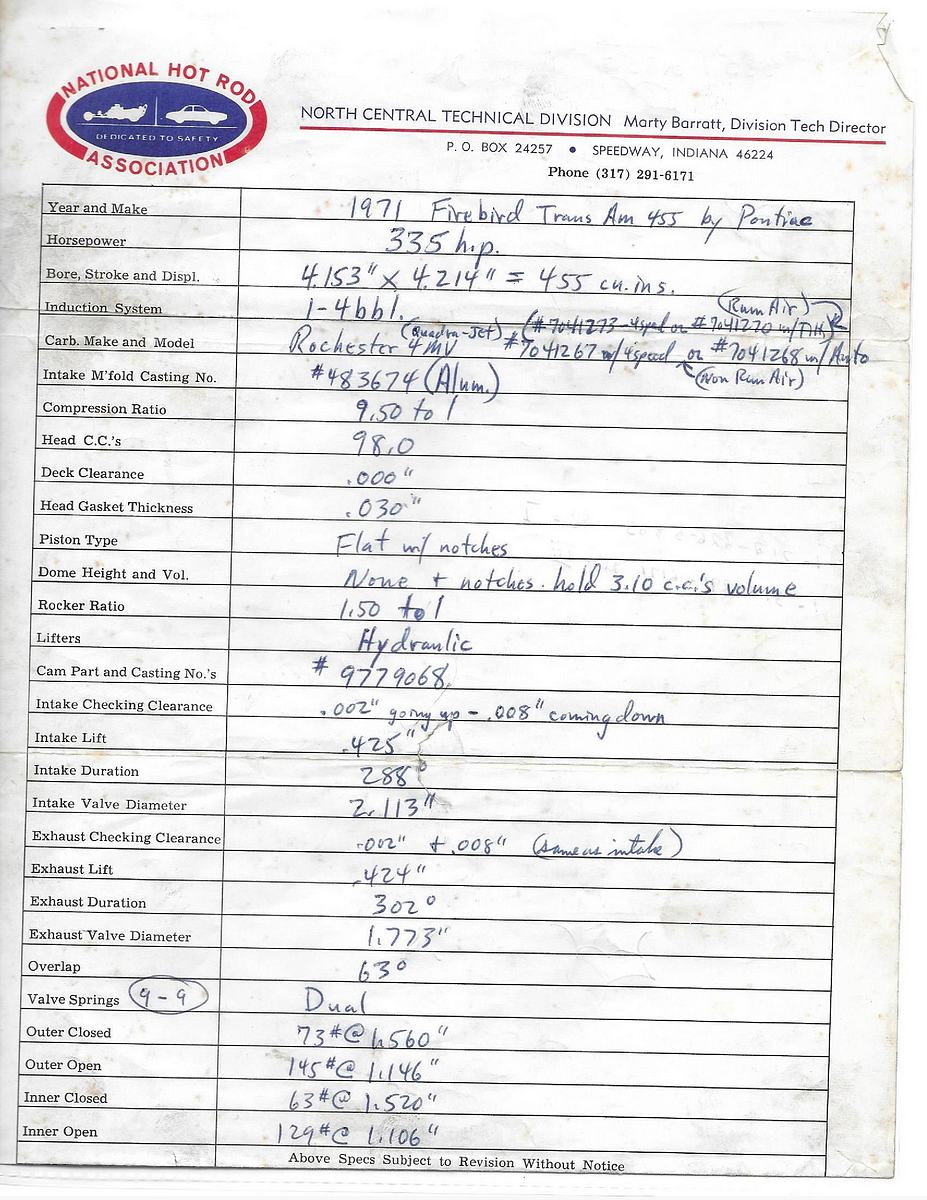 NATIONAL HOT ROD
DEDICATED TO SAFETY
ASSOCIATION
NORTH CENTRAL TECHNICAL DIVISION Marty Barratt, Division Tech Director
P. O. BOX 24257 • SPEEDWAY, INDIANA 46224
Phone (317) 291-6171
Year and Make 1971 Firebird Trans Am 455 by Pontiac
Horsepower 335 h.p.
Bore, Stroke and Displ. 4.153" x 4.214" = 455 cu.ins.
Induction System 1-4bbl. (Ram Air)
(#7041273-4sped or #7041270 w/T.H.)
Carb. Make and Model Rochester (Quadra-Jet) 4MV #7041267 w/4speed or #7041268 w/Auto
(Non Ram Air)
Intake M'fold Casting No. #483674 (Alum.)
Compression Ratio 9.50 to 1
Head C.C.'s 98.0
Deck Clearance .000"
Head Gasket Thickness .030"
Piston Type Flat w/ notches
Dome Height and Vol. None + notches hold 3.10 c.c.'s volume
Rocker Ratio 1.50 to 1
Lifters Hydraulic
Cam Part and Casting No.'s # 9779068
Intake Checking Clearance .002" going up - .008" coming down
Intake Lift .425"
Intake Duration 288°
Intake Valve Diameter 2.113"
Exhaust Checking Clearance .002" + .008" (same as intake)
Exhaust Lift .424"
Exhaust Duration 302°
Exhaust Valve Diameter 1.773"
Overlap 63°
Valve Springs 9-9 Dual
Outer Closed 73#@ 1.560"
Outer Open 145#@ 1.146"
Inner Closed 63#@ 1.520"
Inner Open 129#@ 1.106"
Above Specs Subject to Revision Without Notice